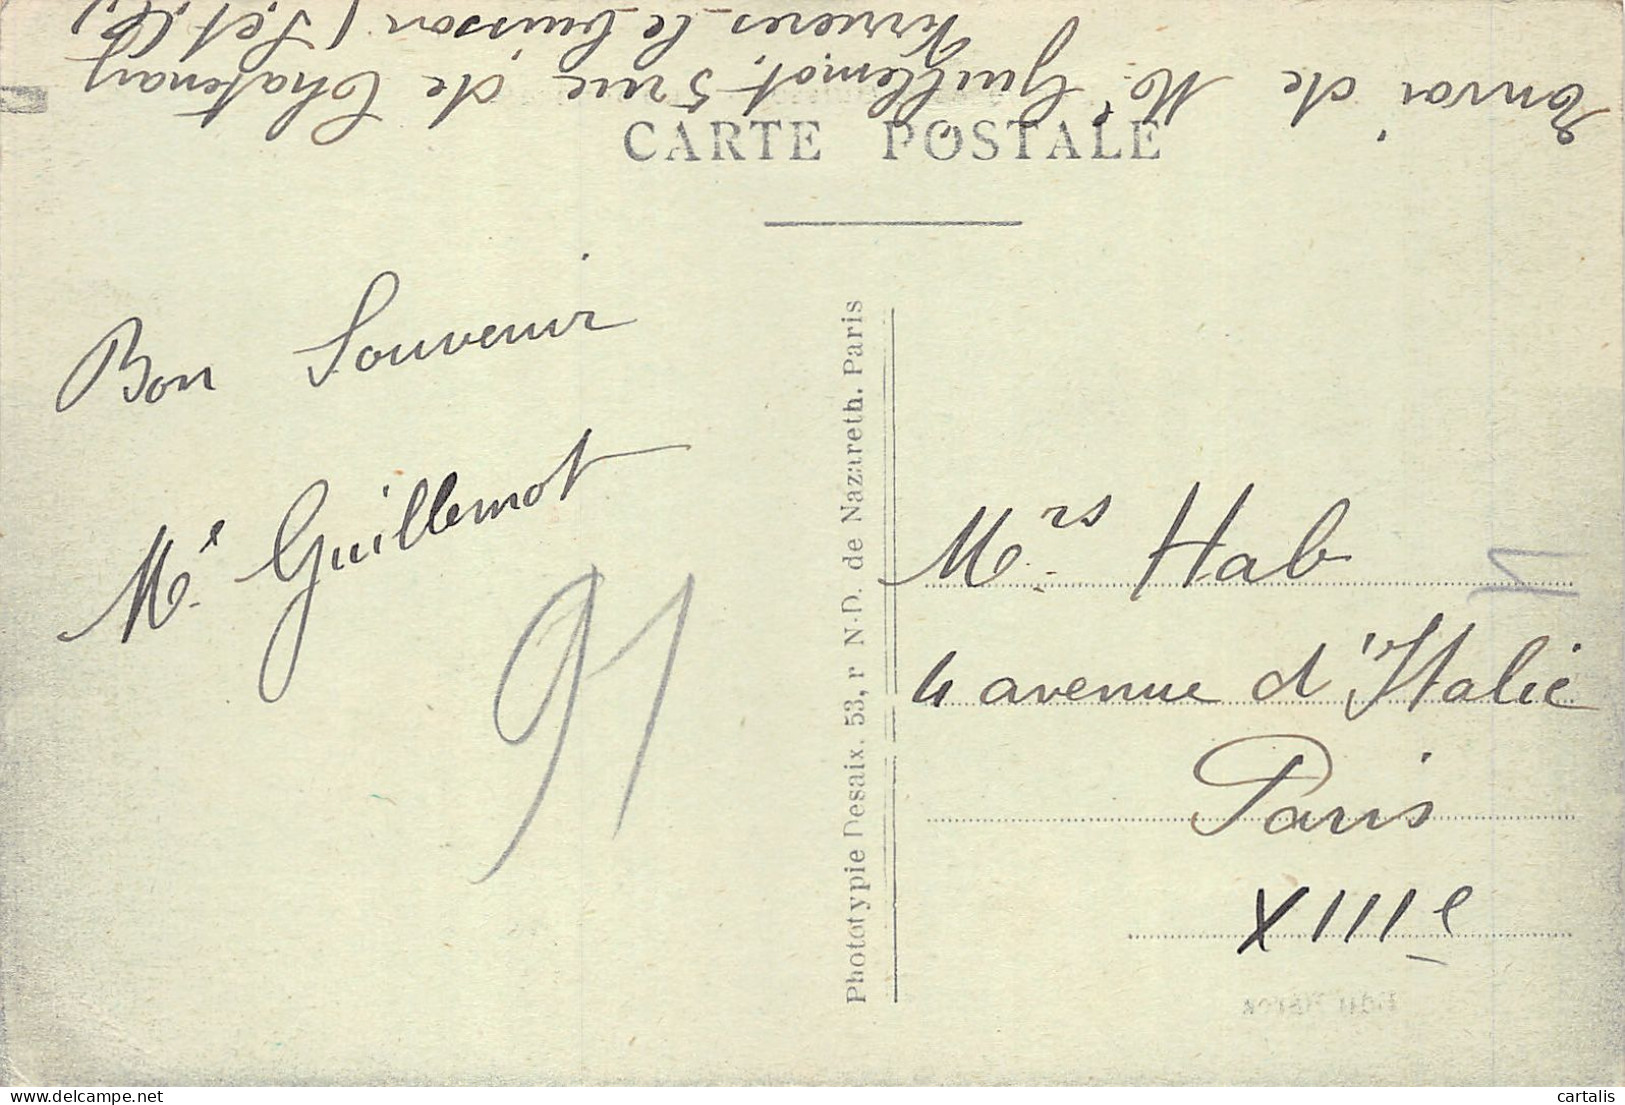 Envoi de Me Guillemot 5 rue de Chatenay
Verrieres le buisson (S. et O.)
CARTE POSTALE
Bon Souvenir
Me Guillemot
91
Phototypie Desaix, 53, r N-D. de Nazareth. Paris
Mrs Hab
4 avenue d'Italie
Paris
XIIIe
delcampe.net
cartalis